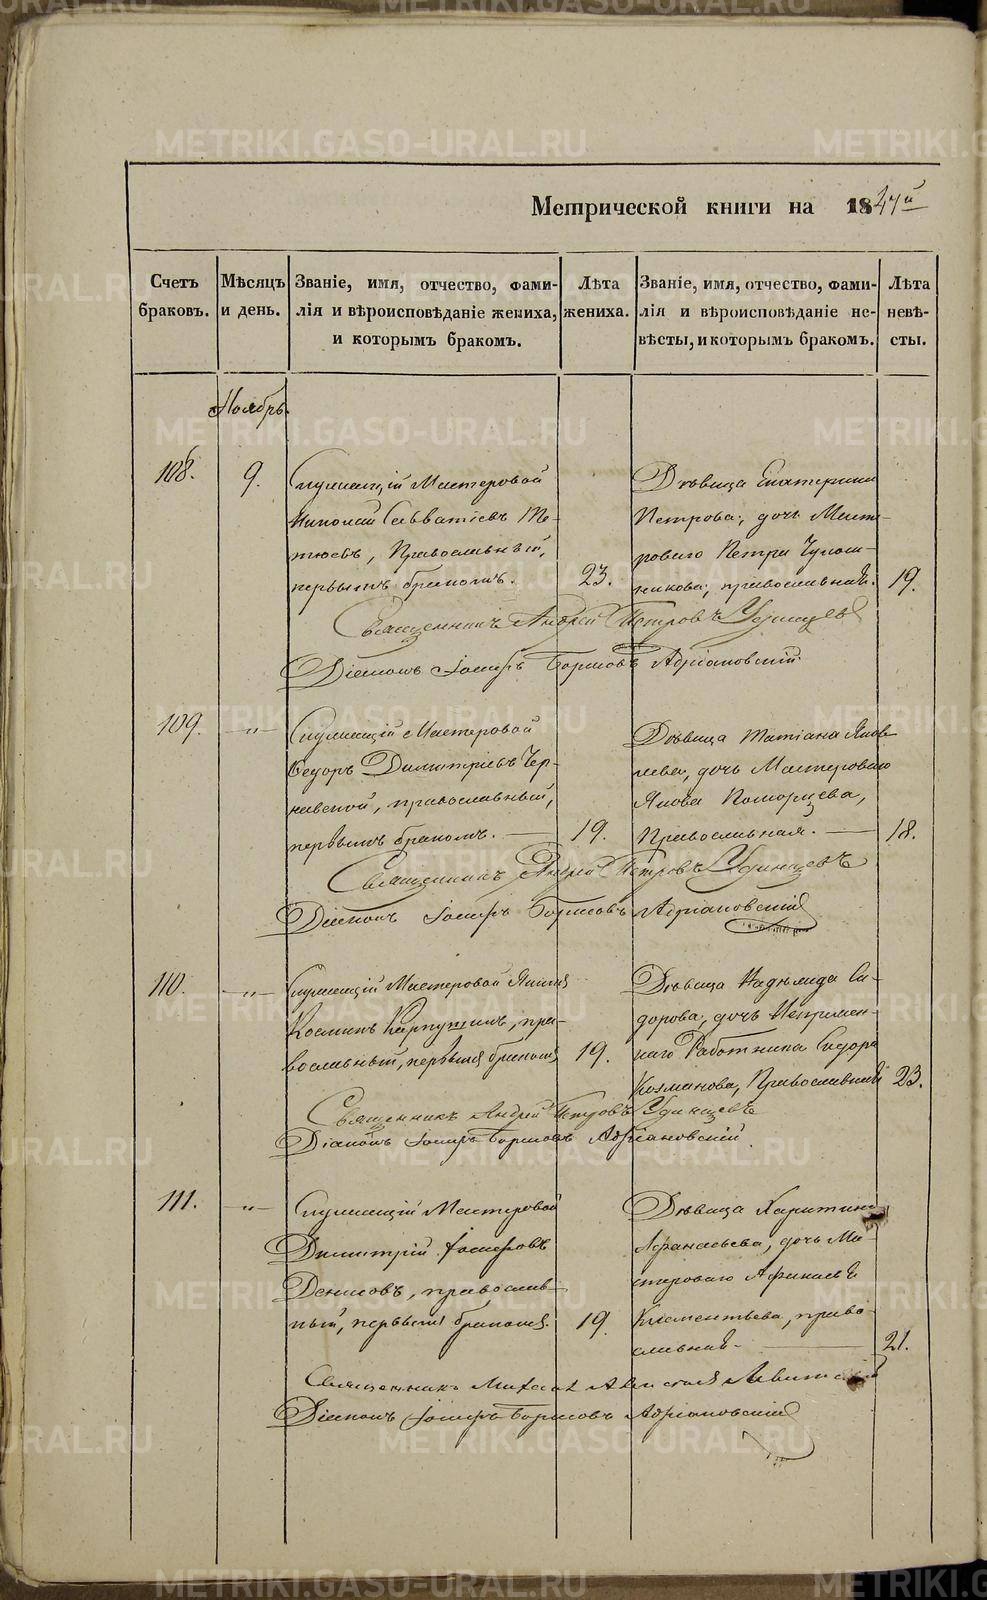 METRIKI.GASO-URAL.RU
Метрической книги на 1847й
Счетъ браковъ.
Мѣсяцъ и день.
Званіе, имя, отчество, фами-
лія и вѣроисповѣданіе жениха,
и которымъ бракомъ.
Лѣта жениха.
Званіе, имя, отчество, фами-
лія и вѣроисповѣданіе не-
вѣсты, и которымъ бракомъ.
Лѣта невѣ-
сты.
Ноябрь.
108.
9.
Служащій Мастеровой
Николай Савватіевъ Те-
тюевъ, Православный,
первымъ бракомъ.
23.
Дѣвица Екатерина
Петрова, дочь Масте-
роваго Петра
православная.
19.
Священникъ Андрей Петровъ Удинцевъ
Діаконъ Іосифъ Борисовъ Адріановскій
109.
-"-
Служащій Мастеровой
Ѳедоръ Димитріевъ Чер-
навской, православный,
первымъ бракомъ.
19.
Дѣвица Татіана Яков-
лева, дочь Мастероваго
Якова Поморцева,
Православная.
18.
Священникъ Андрей Петровъ Удинцевъ
Діаконъ Іосифъ Борисовъ Адріановскій
110.
-"-
Служащій Мастеровой Якимъ
Косминъ Карпушинъ, пра-
вославный, первымъ бракомъ
19.
Дѣвица Надежда Си-
дорова, дочь Непремен-
наго Работника Сидора
Козманова, Православная
23.
Священникъ Андрей Петровъ Удинцевъ
Діаконъ Іосифъ Борисовъ Адріановскій
111.
-"-
Служащій Мастеровой
Димитрій Іосифовъ
Денисовъ, православ-
ный, первымъ бракомъ.
19.
Дѣвица Харитина
Афанасьева, дочь Ма-
стероваго Афанасья
Климентьева, право-
славная.
21.
Священникъ Михаил Левитскій
Діаконъ Іосифъ Борисовъ Адріановскій